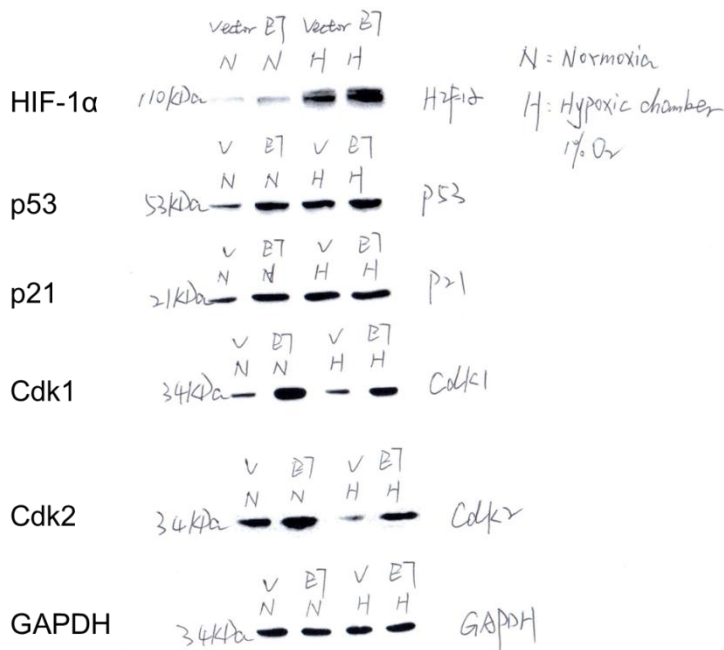 Vector E7 Vector E7
N N H H
N = Normoxia
HIF-1α 110kDa HIF-1α
H: Hypoxic chamber
1% O2
V E7 V E7
N N H H
p53 53kDa P53
V E7 V E7
N N H H
p21 21kDa P21
V E7 V E7
N N H H
Cdk1 34kDa Cdk1
V E7 V E7
N N H H
Cdk2 34kDa Cdk2
V E7 V E7
N N H H
GAPDH 34kDa GAPDH